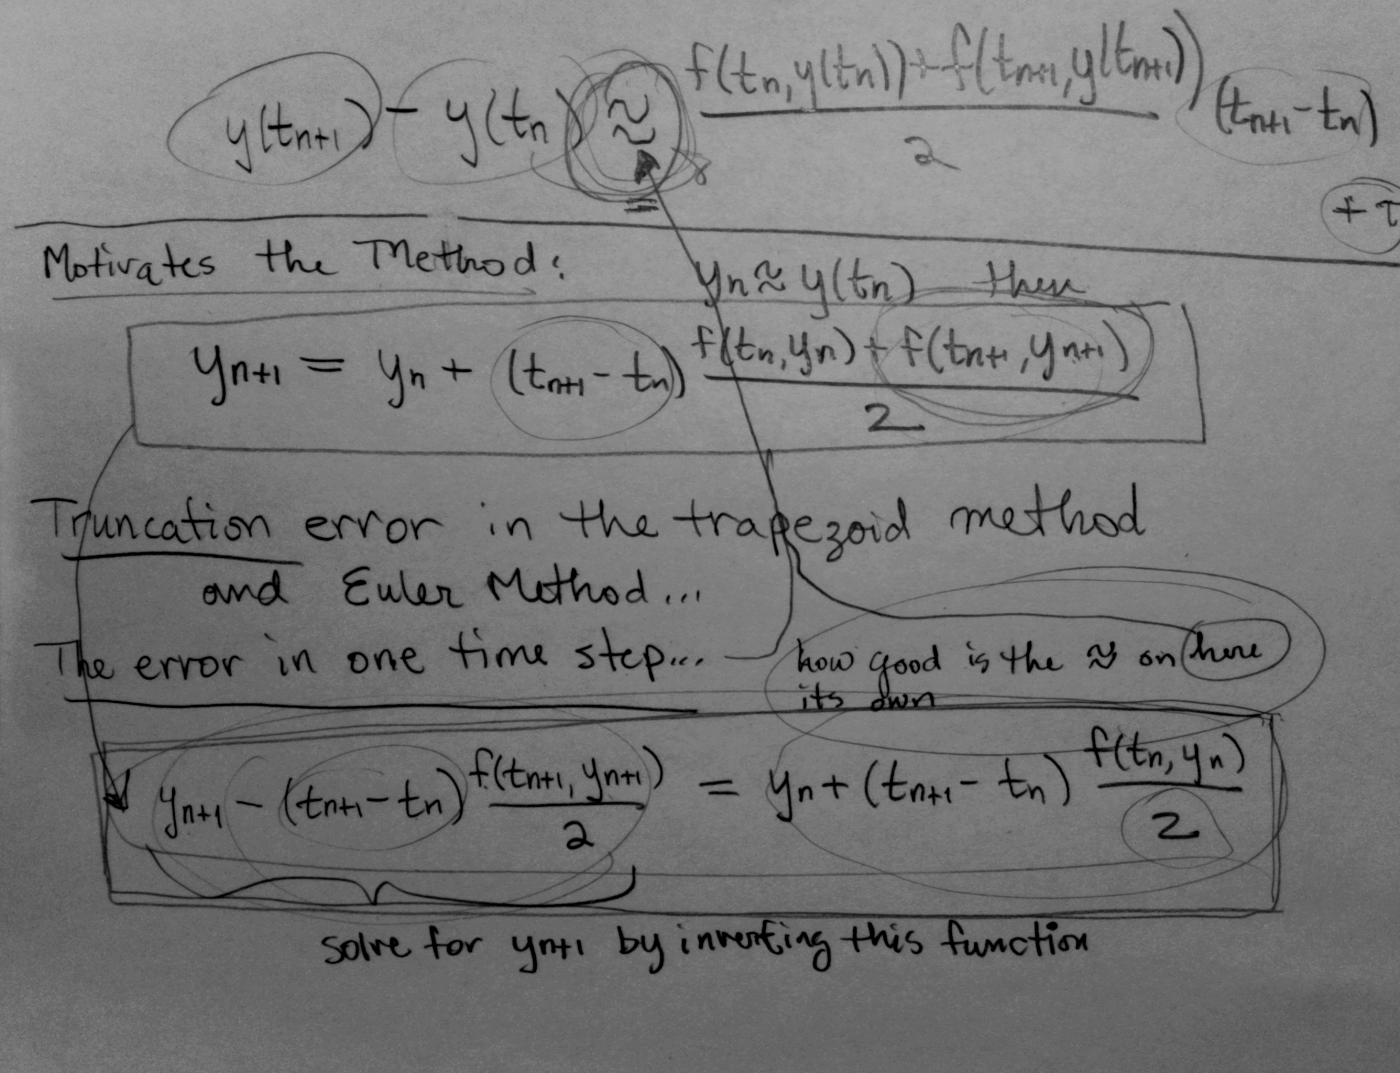 y(t_{n+1}) - y(t_n) ≈ \frac{f(t_n, y(t_n)) + f(t_{n+1}, y(t_{n+1}))}{2} (t_{n+1} - t_n)
=
+ τ
Motivates the Method:
y_n ≈ y(t_n) then
y_{n+1} = y_n + (t_{n+1} - t_n) \frac{f(t_n, y_n) + f(t_{n+1}, y_{n+1})}{2}
Truncation error in the trapezoid method
and Euler Method...
The error in one time step...
how good is the ≈ on here
its own
y_{n+1} - (t_{n+1} - t_n) \frac{f(t_{n+1}, y_{n+1})}{2} = y_n + (t_{n+1} - t_n) \frac{f(t_n, y_n)}{2}
solve for y_{n+1} by inverting this function